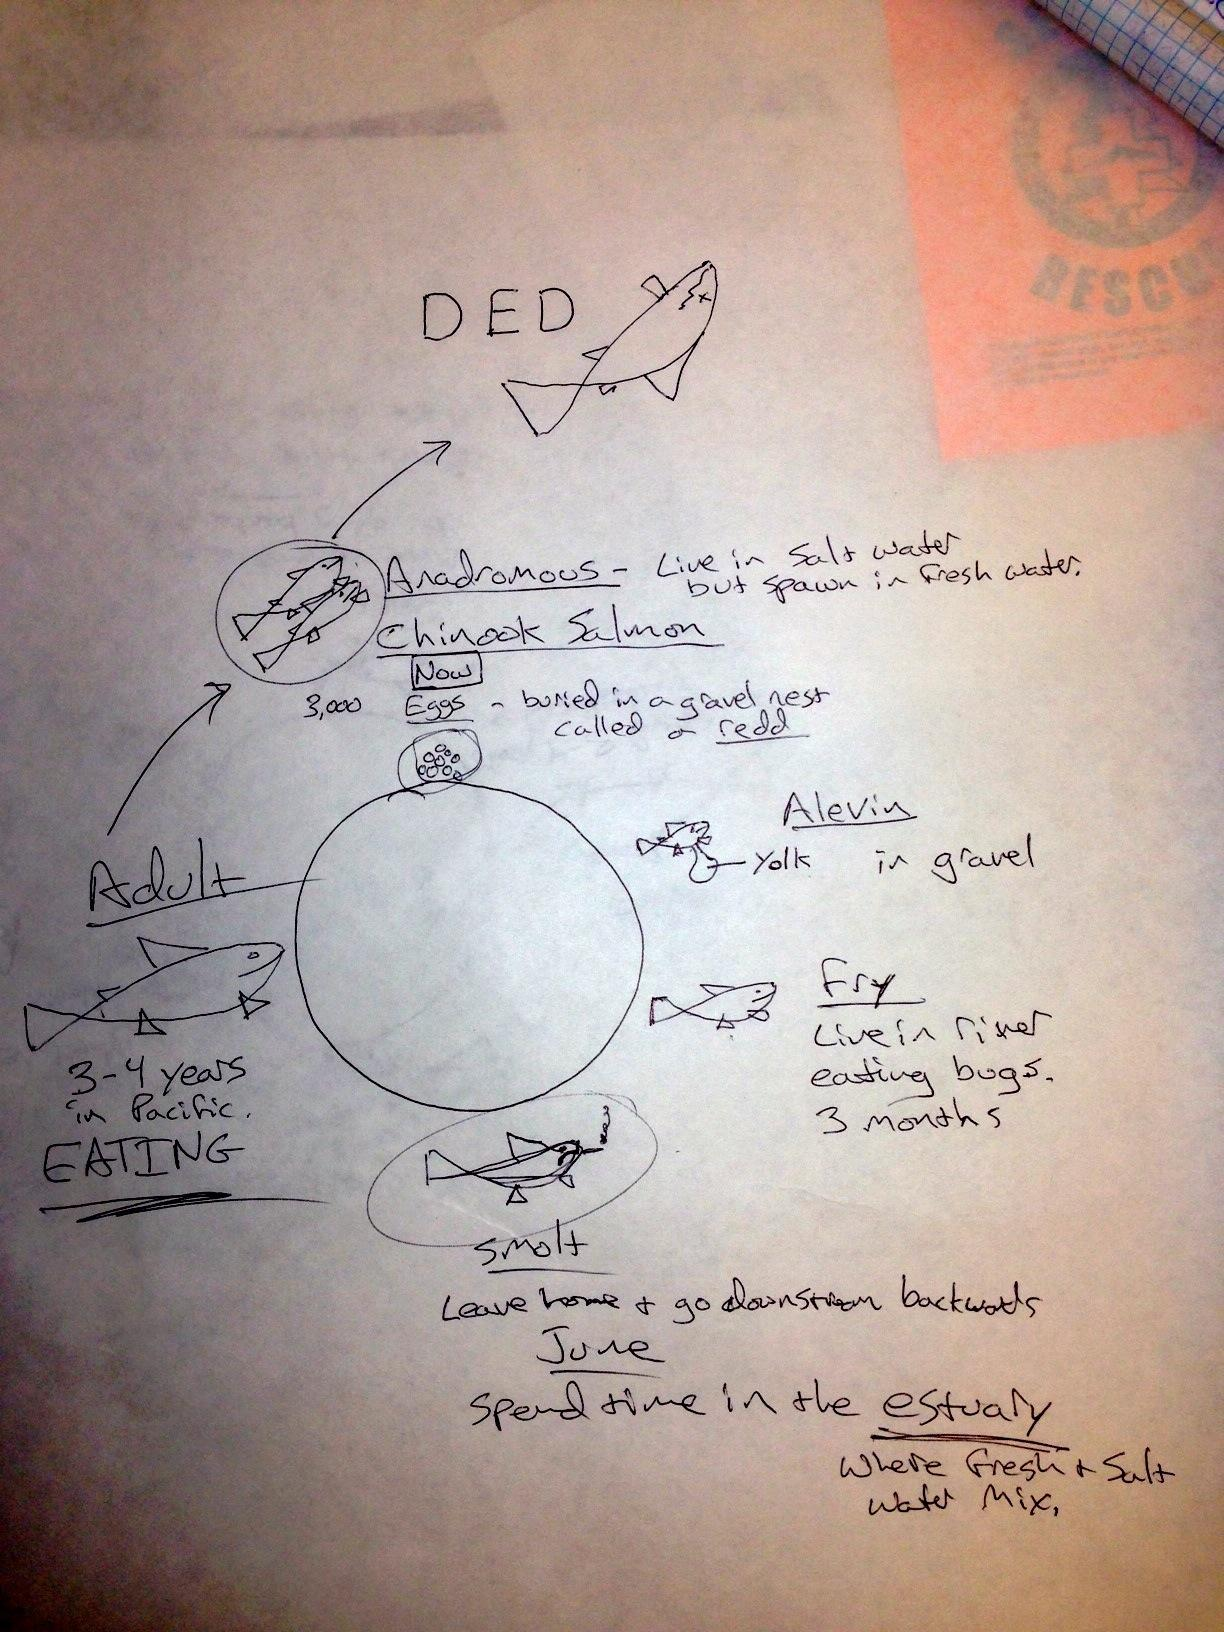 DED
RESCU
Anadromous - Live in Salt water
but spawn in fresh water.
Chinook Salmon
Now
3,000 Eggs - buried in a gravel nest
called a redd
Alevin
Yolk in gravel
Adult
3-4 years
in Pacific.
EATING
Fry
Live in river
eating bugs.
3 months
Smolt
Leave home + go downstream backwards
June
Spend time in the estuary
where fresh + Salt
water mix.